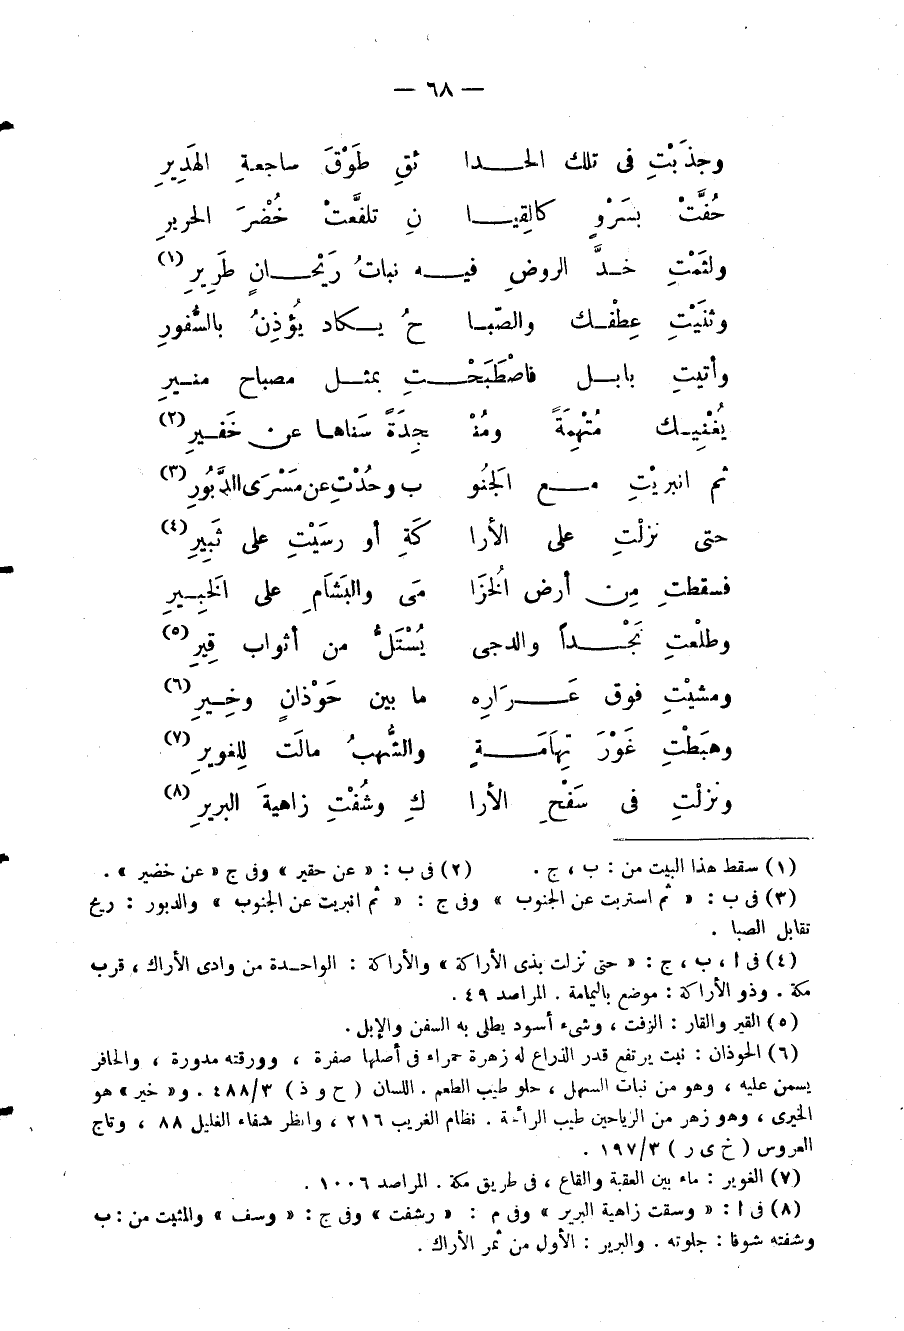 — ٦٨ —
وجذَبْتِ فى تلك الحـدا ئقِ طَوْقَ ساجعةِ الهَدِيرِ
حُفَّتْ بسَرْوٍ كالقِيـا نِ تلفَّعتْ خُضْرَ الحريرِ
ولثَمْتِ خـدَّ الروضِ فيـه نباتُ رَيْحـانٍ طَرِيرِ (١)
وثنَيْتِ عِطْفـك والصّبـا حُ يـكاد يُؤذِنُ بالسُّفورِ
وأتيتِ بابـل فاصْطَبَحْـتِ بمثـل مصباح منـيرِ
يُغْنِيـك مُتْهِمَةً ومُنْـ جِدَةً سَناهـا عن خَفـيرِ (٢)
ثم انبريْتِ مـع الجَنُو ب وحُدْتِ عن مَسْرَى الدَّبُورِ (٣)
حتى نزلْتِ على الأرا كَةِ أو رسَيْتِ على ثَبِيرِ (٤)
فسقطتِ مِن أرض الخُزَا مَى والبَشَامِ على الخَبِـيرِ
وطلعْتِ نَجْـداً والدجى يُسْتَلُّ من أثواب قِيرِ (٥)
ومشيْتِ فوق عَـرَارِه ما بين حَوْذانٍ وخِـيرِ (٦)
وهبَطْتِ غَوْرَ تِهامَـةٍ والشُّهبُ مالَت للِغويرِ (٧)
ونزلْتِ فى سَفْحِ الأرا كِ وشُفْتِ زاهيةَ البريرِ (٨)
(١) سقط هذا البيت من : ب ، ج . (٢) فى ب : « عن حقير » وفى ج « عن خضير » .
(٣) فى ب : « ثم استربت عن الجنوب » وفى ج : « ثم انبريت عن الجنوب » والدبور : ريح
تقابل الصبا .
(٤) فى ا ، ب ، ج : « حتى نزلت بذى الأراكة » والأراكة : الواحـدة من وادى الأراك ، قرب
مكة . وذو الأراكة : موضع باليمامة . المراصد ٤٩ .
(٥) القير والقار : الزفت ، وشىء أسود يطلى به السفن والإبل .
(٦) الحوذان : نبت يرتفع قدر الذراع له زهرة حمراء فى أصلها صفرة ، وورقته مدورة ، والحافر
يسمن عليه ، وهو من نبات السهل ، حلو طيب الطعم . اللسان ( ح و ذ ) ٤٨٨/٣ . و« خير » هو
الخيرى ، وهو زهر من الرياحين طيب الرائحة . نظام الغريب ٢١٦ ، وانظر شفاء الغليل ٨٨ ، وتاج
العروس ( خ ى ر ) ١٩٧/٣ .
(٧) الغوير : ماء بين العقبة والقاع ، فى طريق مكة . المراصد ١٠٠٦ .
(٨) فى ا : « وسقت زاهية البرير » وفى م : « رشفت » وفى ج : « وسف » والمثبت من : ب
وشفته شوفا : جلوته . والبرير : الأول من ثمر الأراك .